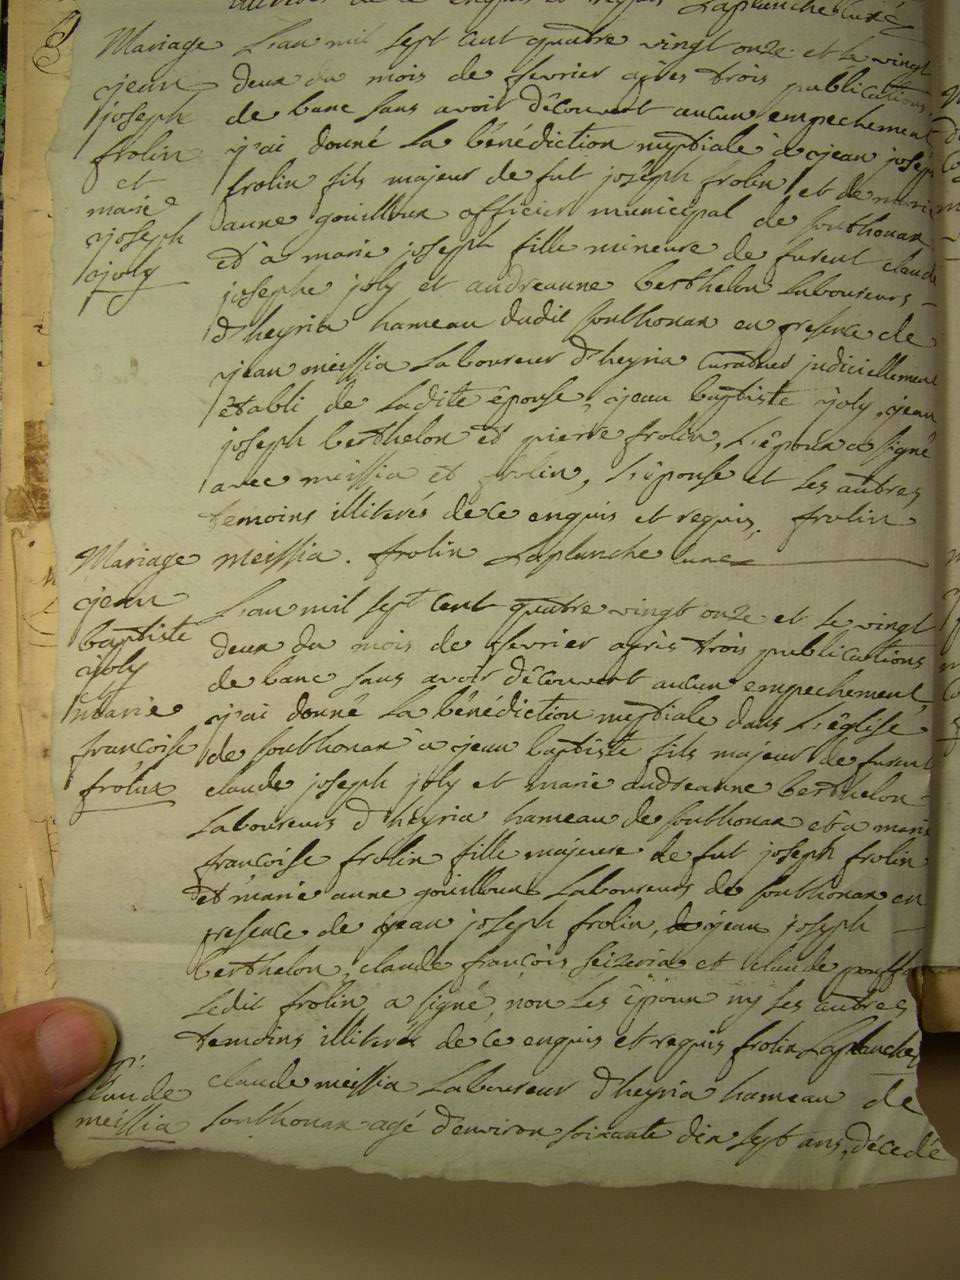 de ce enquis et requis Laplanche curé
Mariage
jean
joseph
frolin
et
marie
joseph
joly
L'an mil sept cent quatre vingt onze et le vingt
deux du mois de fevrier après trois publications
de banc sans avoir découvert aucun empechement
j'ai donné la bénédiction nuptiale à jean joseph
frolin fils majeur de fut joseph frolin et de marie
anne gouilloux officier municipal de southonax
et à marie joseph fille mineure de furent claude
josephe joly et andreanne berthelon laboureurs
d'heyria hameau dudit southonax en presence de
jean meissia laboureur d'heyria curateur judiciellement
établi de ladite épouse, jean baptiste joly, jean
joseph berthelon et pierre frolin, l'époux a signé
avec meissia et frolin, l'épouse et les autres
temoins illiterés de ce enquis et requis. frolin
meissia. frolin Laplanche curé
Mariage
jean
baptiste
joly
marie
francoise
frolin
L'an mil sept cent quatre vingt onze et le vingt
deux du mois de fevrier après trois publications
de banc sans avoir découvert aucun empechement,
j'ai donné la bénédiction nuptiale dans l'église
de southonax à jean baptiste fils majeur de furent
claude joseph joly et marie andreanne berthelon
laboureurs d'heyria hameau de southonax et à marie
francoise frolin fille majeure de fut joseph frolin
et marie anne gouilloux laboureurs de southonax en
presence de jean joseph frolin, de jean joseph
berthelon, claude françois et claude
ledit frolin a signé, non les époux ny les autres
temoins illiterés de ce enquis et requis frolin Laplanche
claude
meissia
claude meissia laboureur d'heyria hameau de
southonax agé d'environ soixante dix sept ans, décedé